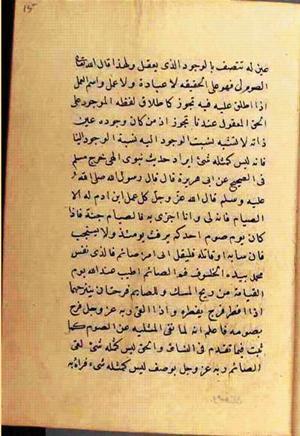 عين له تتصف بالوجود الذى يعقل ولهذا قال الله تعالى
الصوم لى فهو على الحقيقه لا عبادة ولا عمل واسم العمل
اذا اطلق عليه فيه تجوز كاطلاق لفظه الموجود على
الحق المعقول عندنا تجوز اذ من كان وجوده عين
ذاته لا تشبه نسبت الوجود اليه نسبة الوجود الينا
فانه ليس كمثله شئ ايراد حديث نبوى الهى خرج مسلم
فى الصحيح عن ابى هريرة قال قال رسول الله صلى الله
عليه وسلم قال الله عز وجل كل عمل ابن ادم له الا
الصيام فانه لى وانا اجزى به والصيام جنة فاذا
كان يوم صوم احدكم فلا يرفث يومئذ ولا يسخب
فان سابه احد او قاتله فليقل انى امرؤ صائم والذى نفس
محمد بيده لخلوف فم الصائم اطيب عند الله يوم
القيامة من ريح المسك وللصايم فرحتان يفرحهما
اذا افطر فرح بفطره واذا لقى ربه عز وجل فرح
بصومه فاعلم انه لما نفى المثليه عن الصوم كما
ثبت فيما تقدم فى النسائى والحق ليس كمثله شئ لقى
الصائم ربه عز وجل بوصف ليس كمثله شىء فراه به